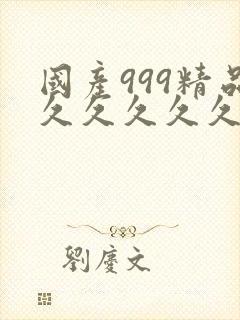 國產999精品
久久久久久
劉慶文